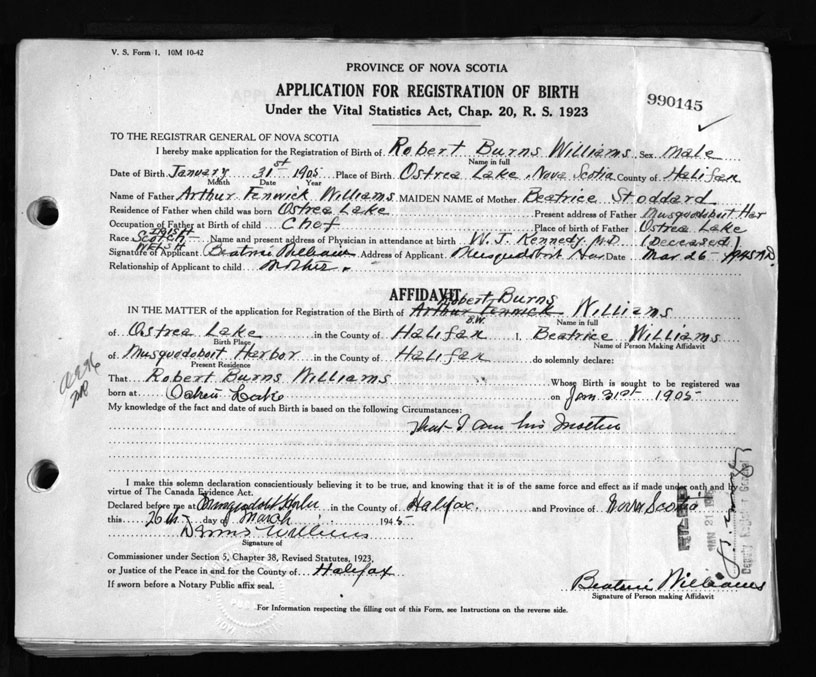 V. S. Form 1. 10M 10-42
PROVINCE OF NOVA SCOTIA
APPLICATION FOR REGISTRATION OF BIRTH
Under the Vital Statistics Act, Chap. 20, R. S. 1923
990145
TO THE REGISTRAR GENERAL OF NOVA SCOTIA
I hereby make application for the Registration of Birth of Robert Burns Williams Sex Male
Name in full
Date of Birth January 31st 1905 Place of Birth Ostrea Lake, Nova Scotia County of Halifax
Month Date Year
Name of Father Arthur Fenwick Williams MAIDEN NAME of Mother Beatrice Stoddard
Residence of Father when child was born Ostrea Lake Present address of Father Musquodoboit Har
Occupation of Father at Birth of child Chef Place of birth of Father Ostrea Lake
Race Scotch Welsh Name and present address of Physician in attendance at birth W. J. Kennedy M.D. (Deceased)
Signature of Applicant Beatrice Williams Address of Applicant Musquodoboit Har Date Mar 26 - 1945
Relationship of Applicant to child Mother.
AFFIDAVIT
Robert Burns
IN THE MATTER of the application for Registration of the Birth of Arthur Fenwick Williams
B.W. Name in full
of Ostrea Lake in the County of Halifax I, Beatrice Williams
Birth Place Name of Person Making Affidavit
of Musquodoboit Harbor in the County of Halifax do solemnly declare:
Present Residence
That Robert Burns Williams Whose Birth is sought to be registered was
born at Ostrea Lake on Jan 31st 1905
My knowledge of the fact and date of such Birth is based on the following Circumstances:
that I am his mother
I make this solemn declaration conscientiously believing it to be true, and knowing that it is of the same force and effect as if made under oath and by
virtue of The Canada Evidence Act.
Declared before me at Musquodoboit Harbor in the County of Halifax and Province of Nova Scotia
this 26th day of March 1945
Dennis Williams
Signature of
Commissioner under Section 5, Chapter 38, Revised Statutes, 1923,
or Justice of the Peace in and for the County of Halifax
If sworn before a Notary Public affix seal.
Beatrice Williams
Signature of Person making Affidavit
For Information respecting the filling out of this Form, see Instructions on the reverse side.